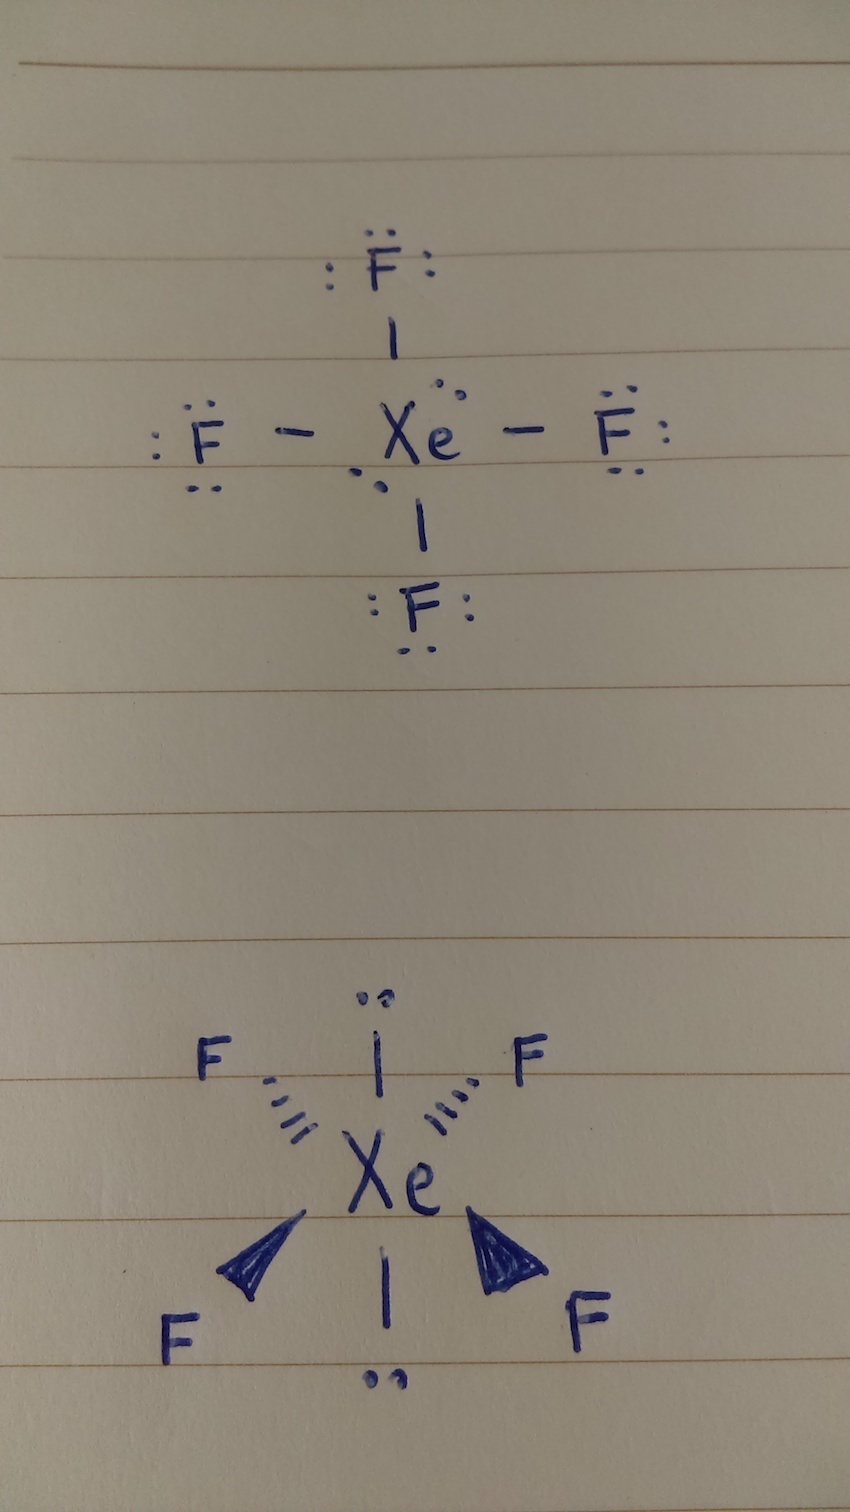 F
F - Xe - F
F
F F
Xe
F F